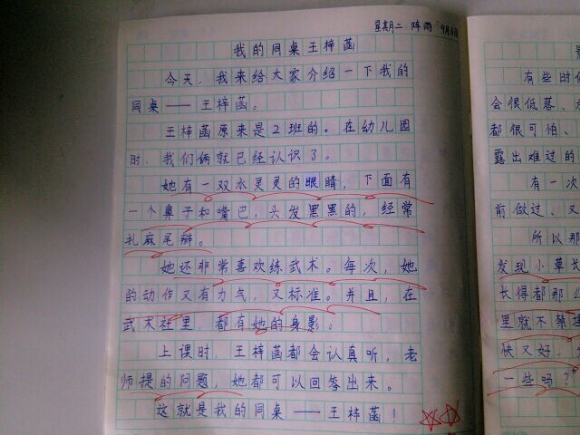 星期二 阵雨 9月
我的同桌王梓菡
今天，我来给大家介绍一下我的
同桌——王梓菡。
王梓菡原来是2班的。在幼儿园
时，我们俩就已经认识了。
她有一双水灵灵的眼睛，下面有
一个鼻子和嘴巴，头发黑黑的，经常
扎麻尾辫。
她还非常喜欢练武术。每次，她
的动作又有力气，又标准。并且，在
武术社里，都有她的身影。
上课时，王梓菡都会认真听，老
师提的问题，她都可以回答出来。
这就是我的同桌——王梓菡！
有些时
会很低落、
都很可怕、
露出难过的
有一次
前做过、又
所以那
发现小草
长得都那
里就不
快又好，
一些吗？